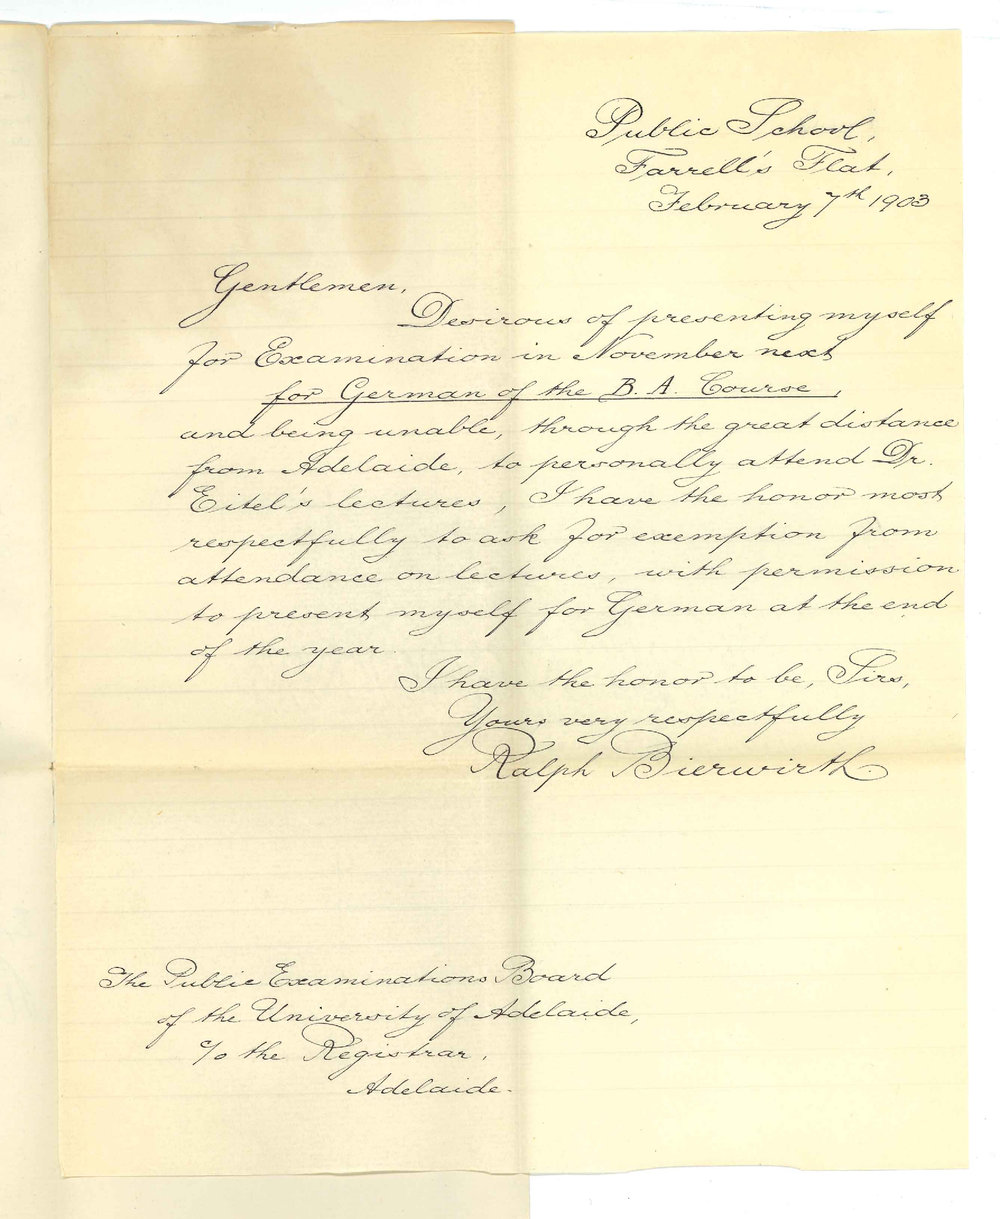 Public School,
Farrell's Flat,
February 7th 1903
Gentlemen,
Desirous of presenting myself
for Examination in November next
for German of the B. A. Course,
and being unable, through the great distance
from Adelaide, to personally attend Dr.
Eitel's lectures, I have the honor most
respectfully to ask for exemption from
attendance on lectures, with permission
to present myself for German at the end
of the year.
I have the honor to be, Sirs,
Yours very respectfully
Ralph Bierwirth.
The Public Examinations Board
of the University of Adelaide,
c/o the Registrar,
Adelaide.